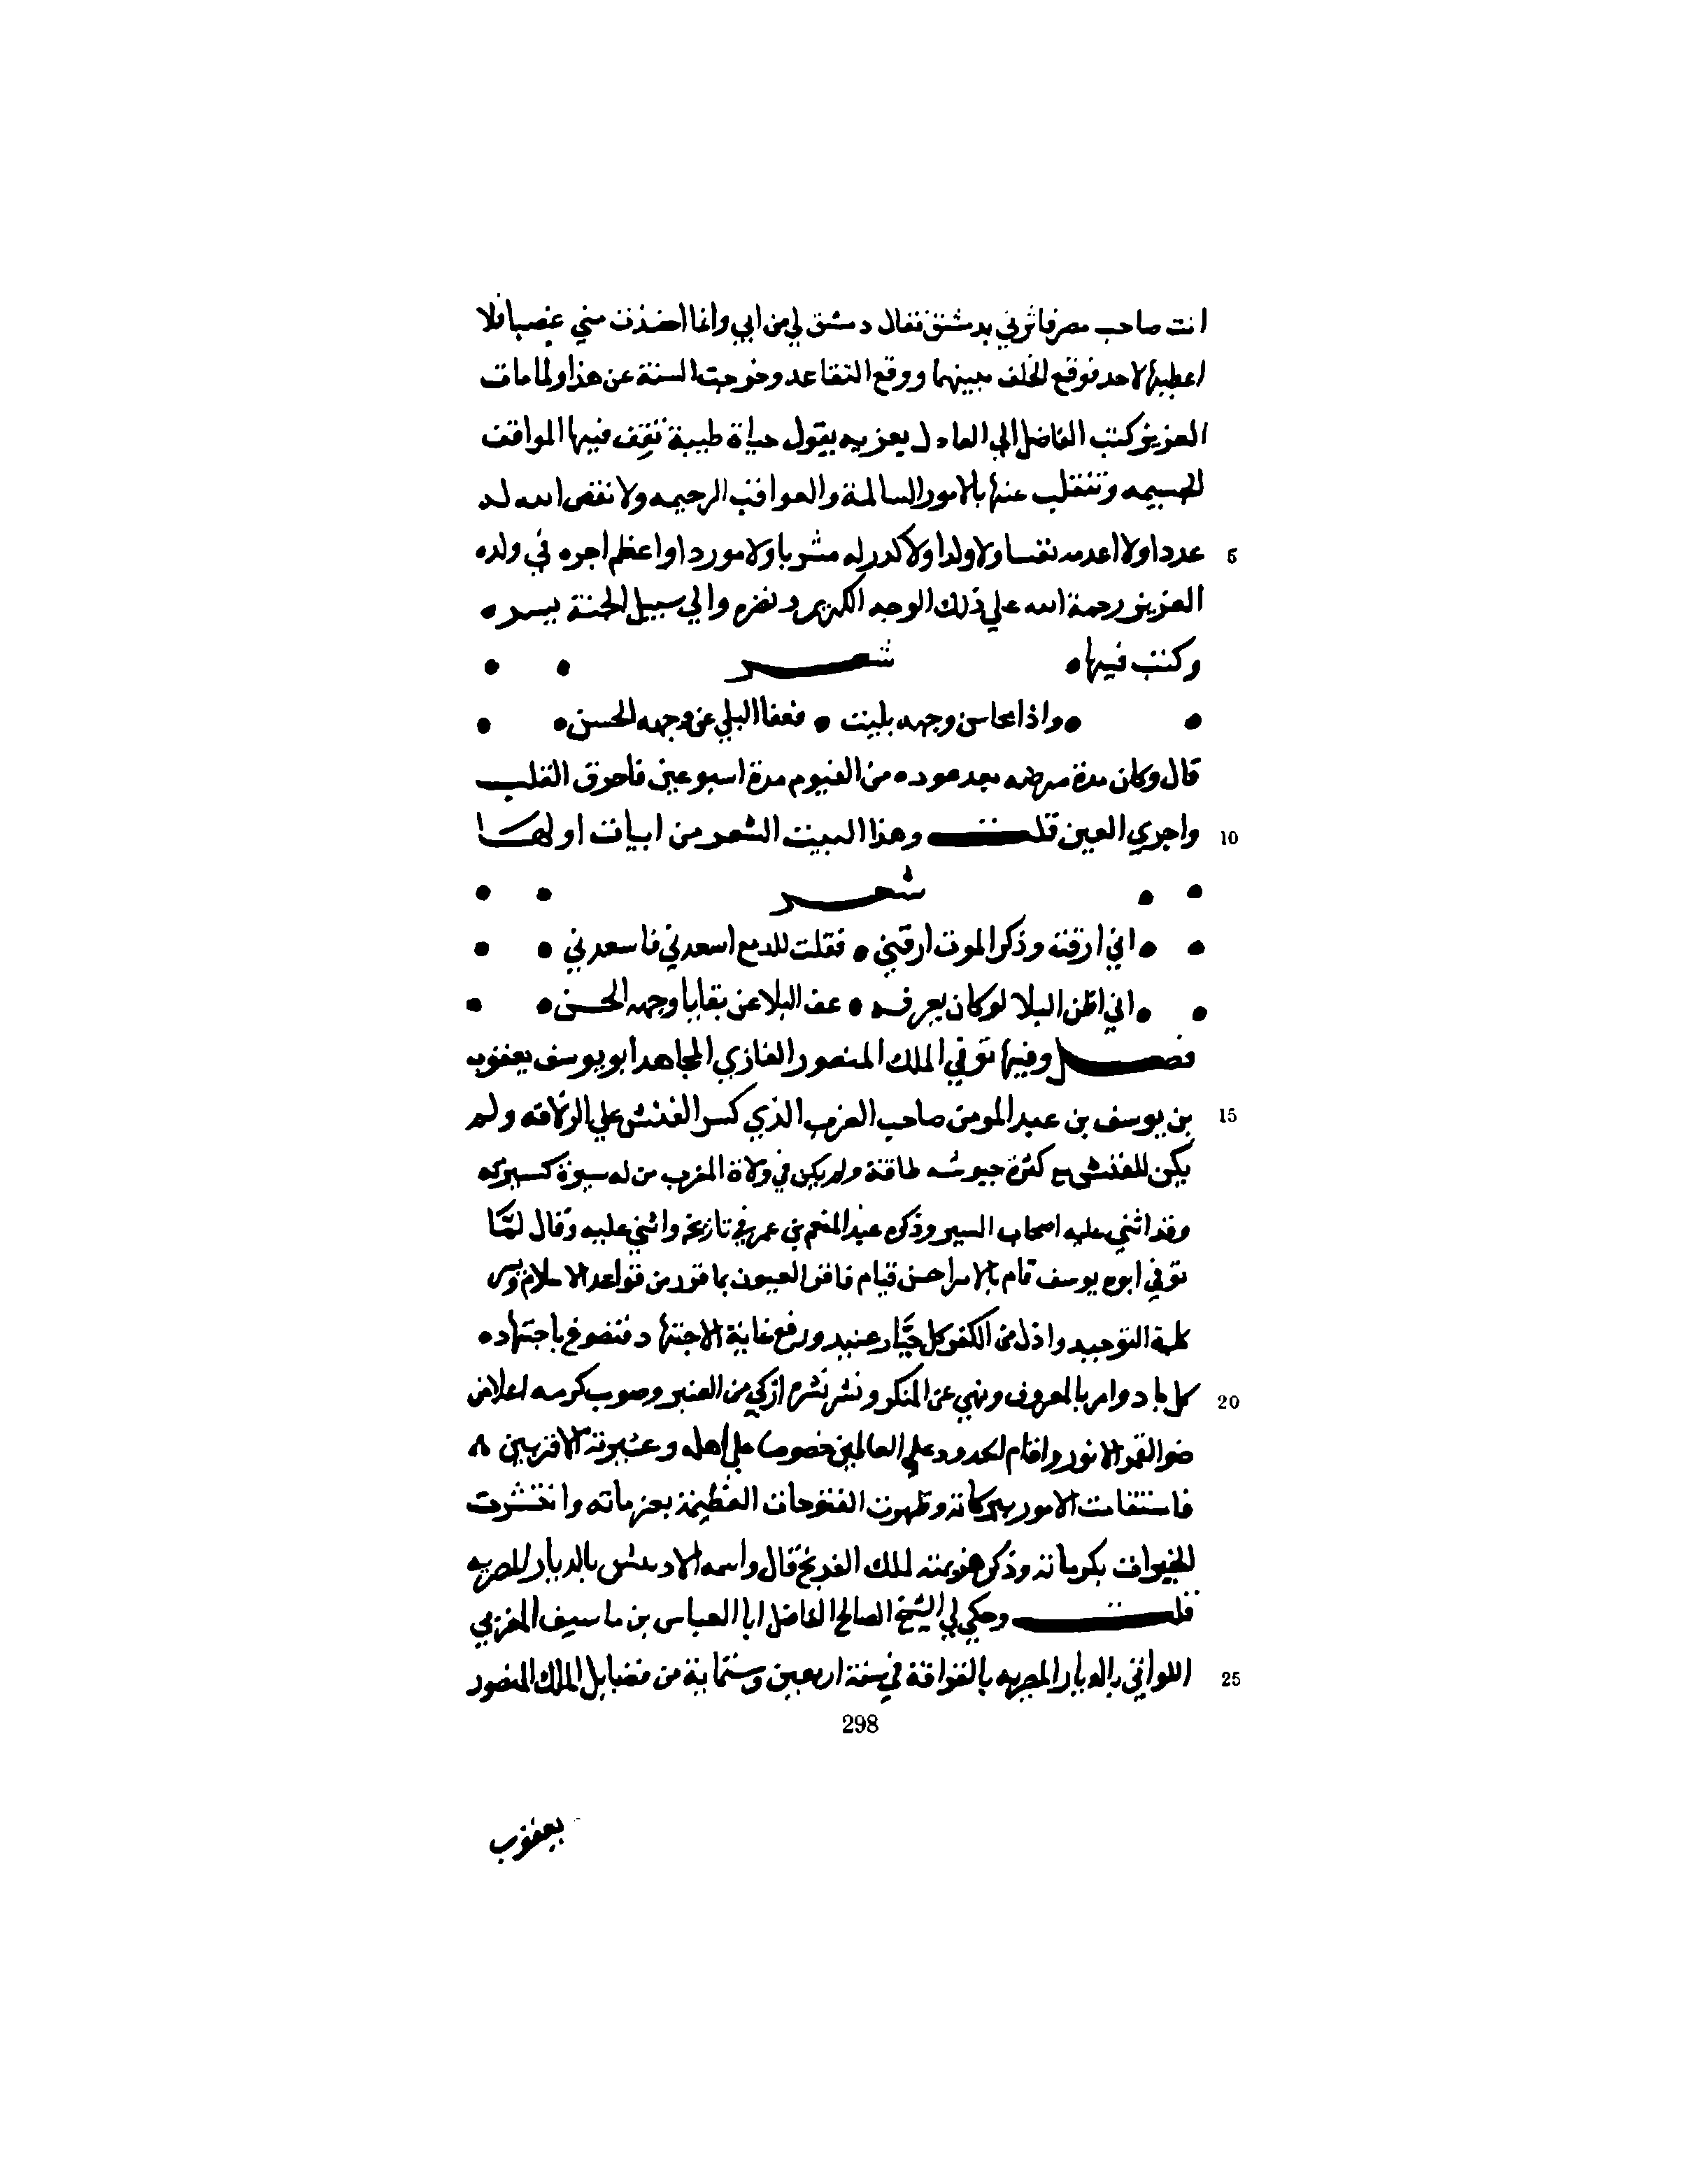 انت صاحب مصر فاثرني بدمشق فقال دمشق لي من ابي وانما اخذت مني غصبا فلا
اعطيها لاحد فوقع الخلف بينهما ووقع التقاعد وخرجت السنة عن هذا ولما مات
العزيز كتب الفاضل الي العادل يعزيه يقول حياة طيبة تقف فيها المواقف
الجسيمه وتنقلب عنها بالامور السالمة والعواقب الرحيمه ولا نقص الله له
5 عددا ولا اعدمه نفسا ولا ولدا ولا كدر له مشربا ولا موردا واعظم اجره في ولده
العزيز رحمة الله علي ذلك الوجه الكريم ونضره والي سبيل الجنة يسره
وكتب فيها شعر
واذا محاسن وجهه بليت • فعفا البلي عن وجهه الحسن
قال وكان مدة مرضه بعد عوده من الفيوم مدة اسبوعين فاحرق القلب
10 واجري العين قلت وهذا البيت الشعر من ابيات اولها
شعر
اني ارقت وذكر الموت ارقني • فقلت للدمع اسعدني فاسعدني
اني اظن البلا لو كان يعرفه • عف البلا عن بقايا وجهه الحسن
فصل وفيها توفي الملك المنصور الغازي المجاهد ابو يوسف يعقوب
15 بن يوسف بن عبد المومن صاحب الغرب الذي كسر الفنش علي الزلاقه ولم
يكن للفنش مع كثرة جيوشه طاقة ولم يكن في ولاة المغرب من له سيرة كسيرته
وقد اثني عليه اصحاب السير وذكره عبد المنعم بن عمر في تاريخه واثني عليه وقال لمّا
توفي ابوه يوسف قام بالامر احسن قيام فاقر العيون بما قرر من قواعد الاسلام
كلمة التوحيد واذل من الكفر كل جبَّار عنيد ورفع غاية الاجتهاد فتضوع باجتهاده
20 كل باد وامر بالمعروف ونهي عن المنكر ونشر نشره ازكي من العنبر وصوب كرمه اعلا من
ضو القمر الانور واقام الحدود علي العالمين خصوصا علي اهله وعشيرته الاقربين
فاستقامت الامور ببركاته وظهرت الفتوحات العظيمة بعزماته وانتشرت
الخيرات بكرماته وذكر هزيمته لملك الفرنج قال واسمه الادفنش بالديار المصريه
قلت وحكي لي الشيخ الصالح الفاضل ابا العباس بن ماسيف المغربي
25 اللواتي بالديار المصريه بالقرافة في سنة اربعين وستماية من فضايل الملك المنصور
298
يعقوب